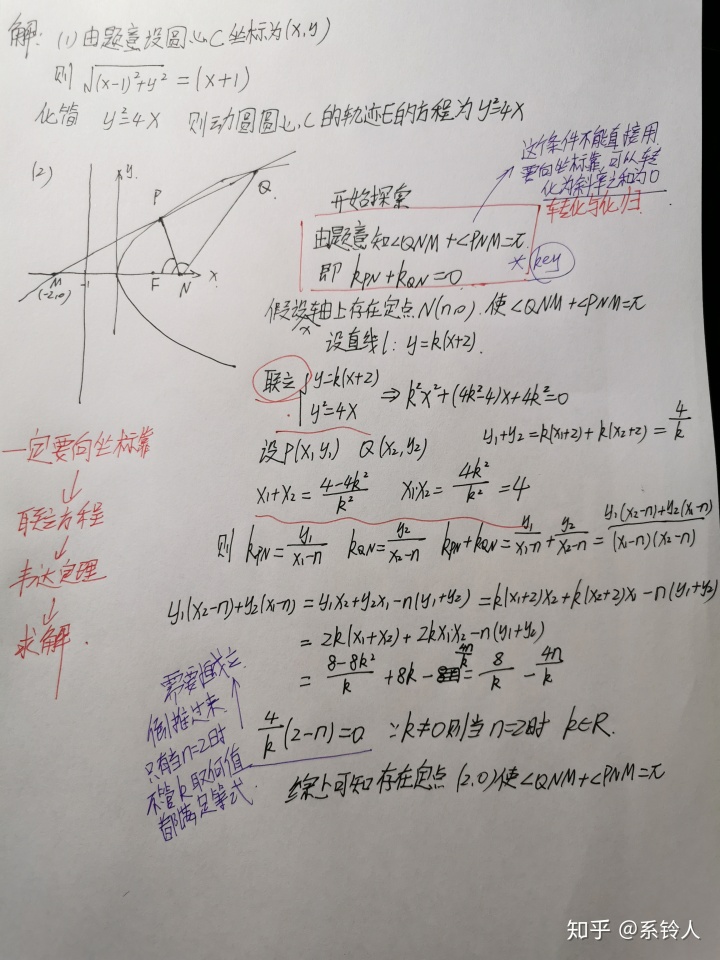 解: (1) 由题意设圆心C坐标为(x,y)
则 √(x-1)²+y² = (x+1)
化简 y²=4x 则动圆圆心C的轨迹E的方程为y²=4x
这个条件不能直接用
要向坐标靠,可以转
化为斜率之和为0
转化与化归
(2)
y
P
Q
M
(-2,0)
-1
F
N
x
开始探索
由题意知∠QNM+∠PNM=π
即 kPN+kQN=0
* key
假设x轴上存在定点N(n,0).使∠QNM+∠PNM=π
设直线l: y=k(x+2).
联立 { y=k(x+2)
y²=4x ⇒ k²x²+(4k²-4)x+4k²=0
设P(x₁y₁) Q(x₂,y₂) y₁+y₂=k(x₁+2)+k(x₂+2)=4/k
x₁+x₂=(4-4k²)/k² x₁x₂=4k²/k²=4
则 kPN=y₁/(x₁-n) kQN=y₂/(x₂-n) kPN+kQN=y₁/(x₁-n)+y₂/(x₂-n)=[y₁(x₂-n)+y₂(x₁-n)]/[(x₁-n)(x₂-n)]
y₁(x₂-n)+y₂(x₁-n)=y₁x₂+y₂x₁-n(y₁+y₂)=k(x₁+2)x₂+k(x₂+2)x₁-n(y₁+y₂)
=2k(x₁+x₂)+2kx₁x₂-n(y₁+y₂)
=(8-8k²)/k+8k-4n/k=8/k-4n/k
4/k(2-n)=0 ∵k≠0则当n=2时 k∈R.
综上可知存在定点(2,0)使∠QNM+∠PNM=π
一定要向坐标靠
↓
联立方程
↓
韦达定理
↓
求解
需要恒成立
倒推过来
只有当n=2时
不管k取何值
都满足等式
知乎 @系铃人